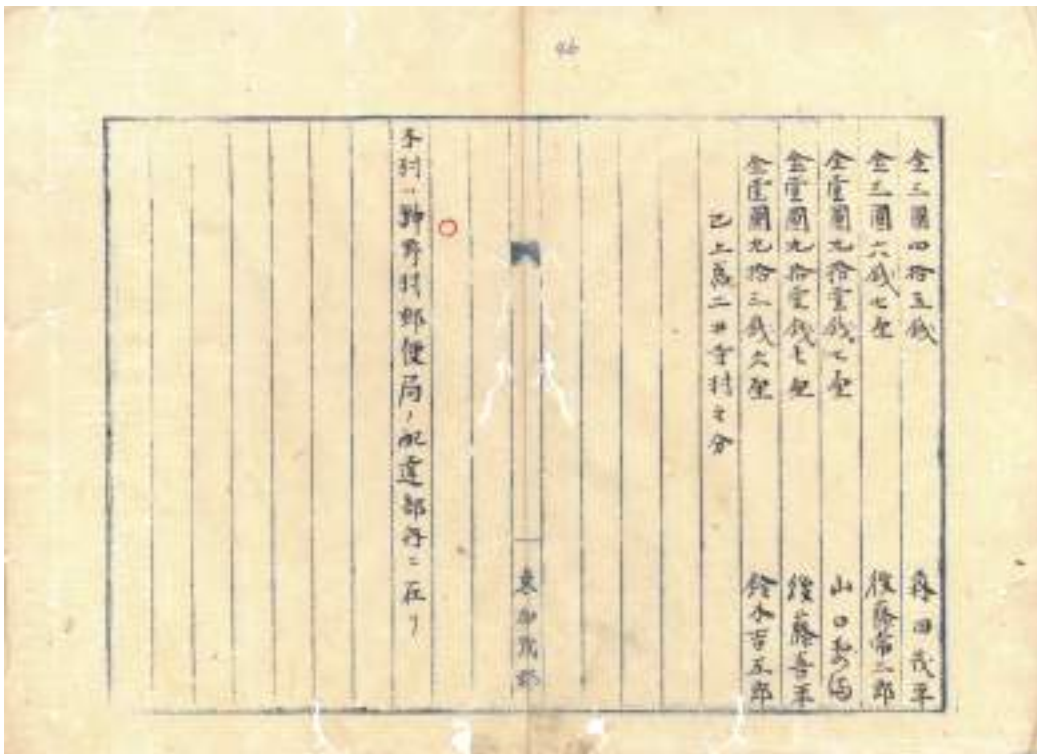 46
金三圓四拾五銭 森田茂平
金三圓六銭七厘 後藤常二郎
金壹圓九拾壹銭七厘 山口
金壹圓九拾壹銭七厘 後藤吾平
金壹圓九拾三銭六厘 鈴木吉五郎
乙上 村之分
東加茂郡
本村ハ 野村郵便局ノ配達部 ニ在リ